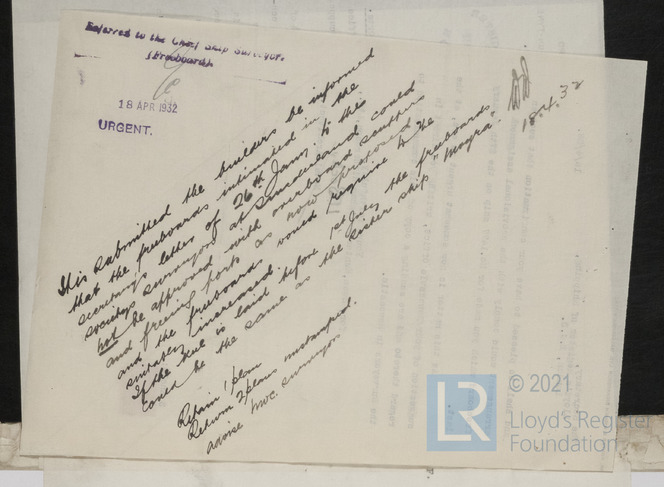 Referred to the Chief Ship Surveyor.
(Freeboards)
18 APR 1932
URGENT.
18.4.32
It is submitted the builders be informed
that the freeboards intimated in the
secretary's letter of 26th Jany. to the
societys surveyors at Sunderland could
not be approved with overboard scuppers
and freeing ports as now proposed
and the freeboards would require to be
suitably increased.
If the keel is laid before 1st July, the freeboards
could be the same as the sister ship "Mogra".
Retain 1 plan
Return 2 plans unstamped.
advise N/C. surveyors
LR
© 2021
Lloyd's Register
Foundation